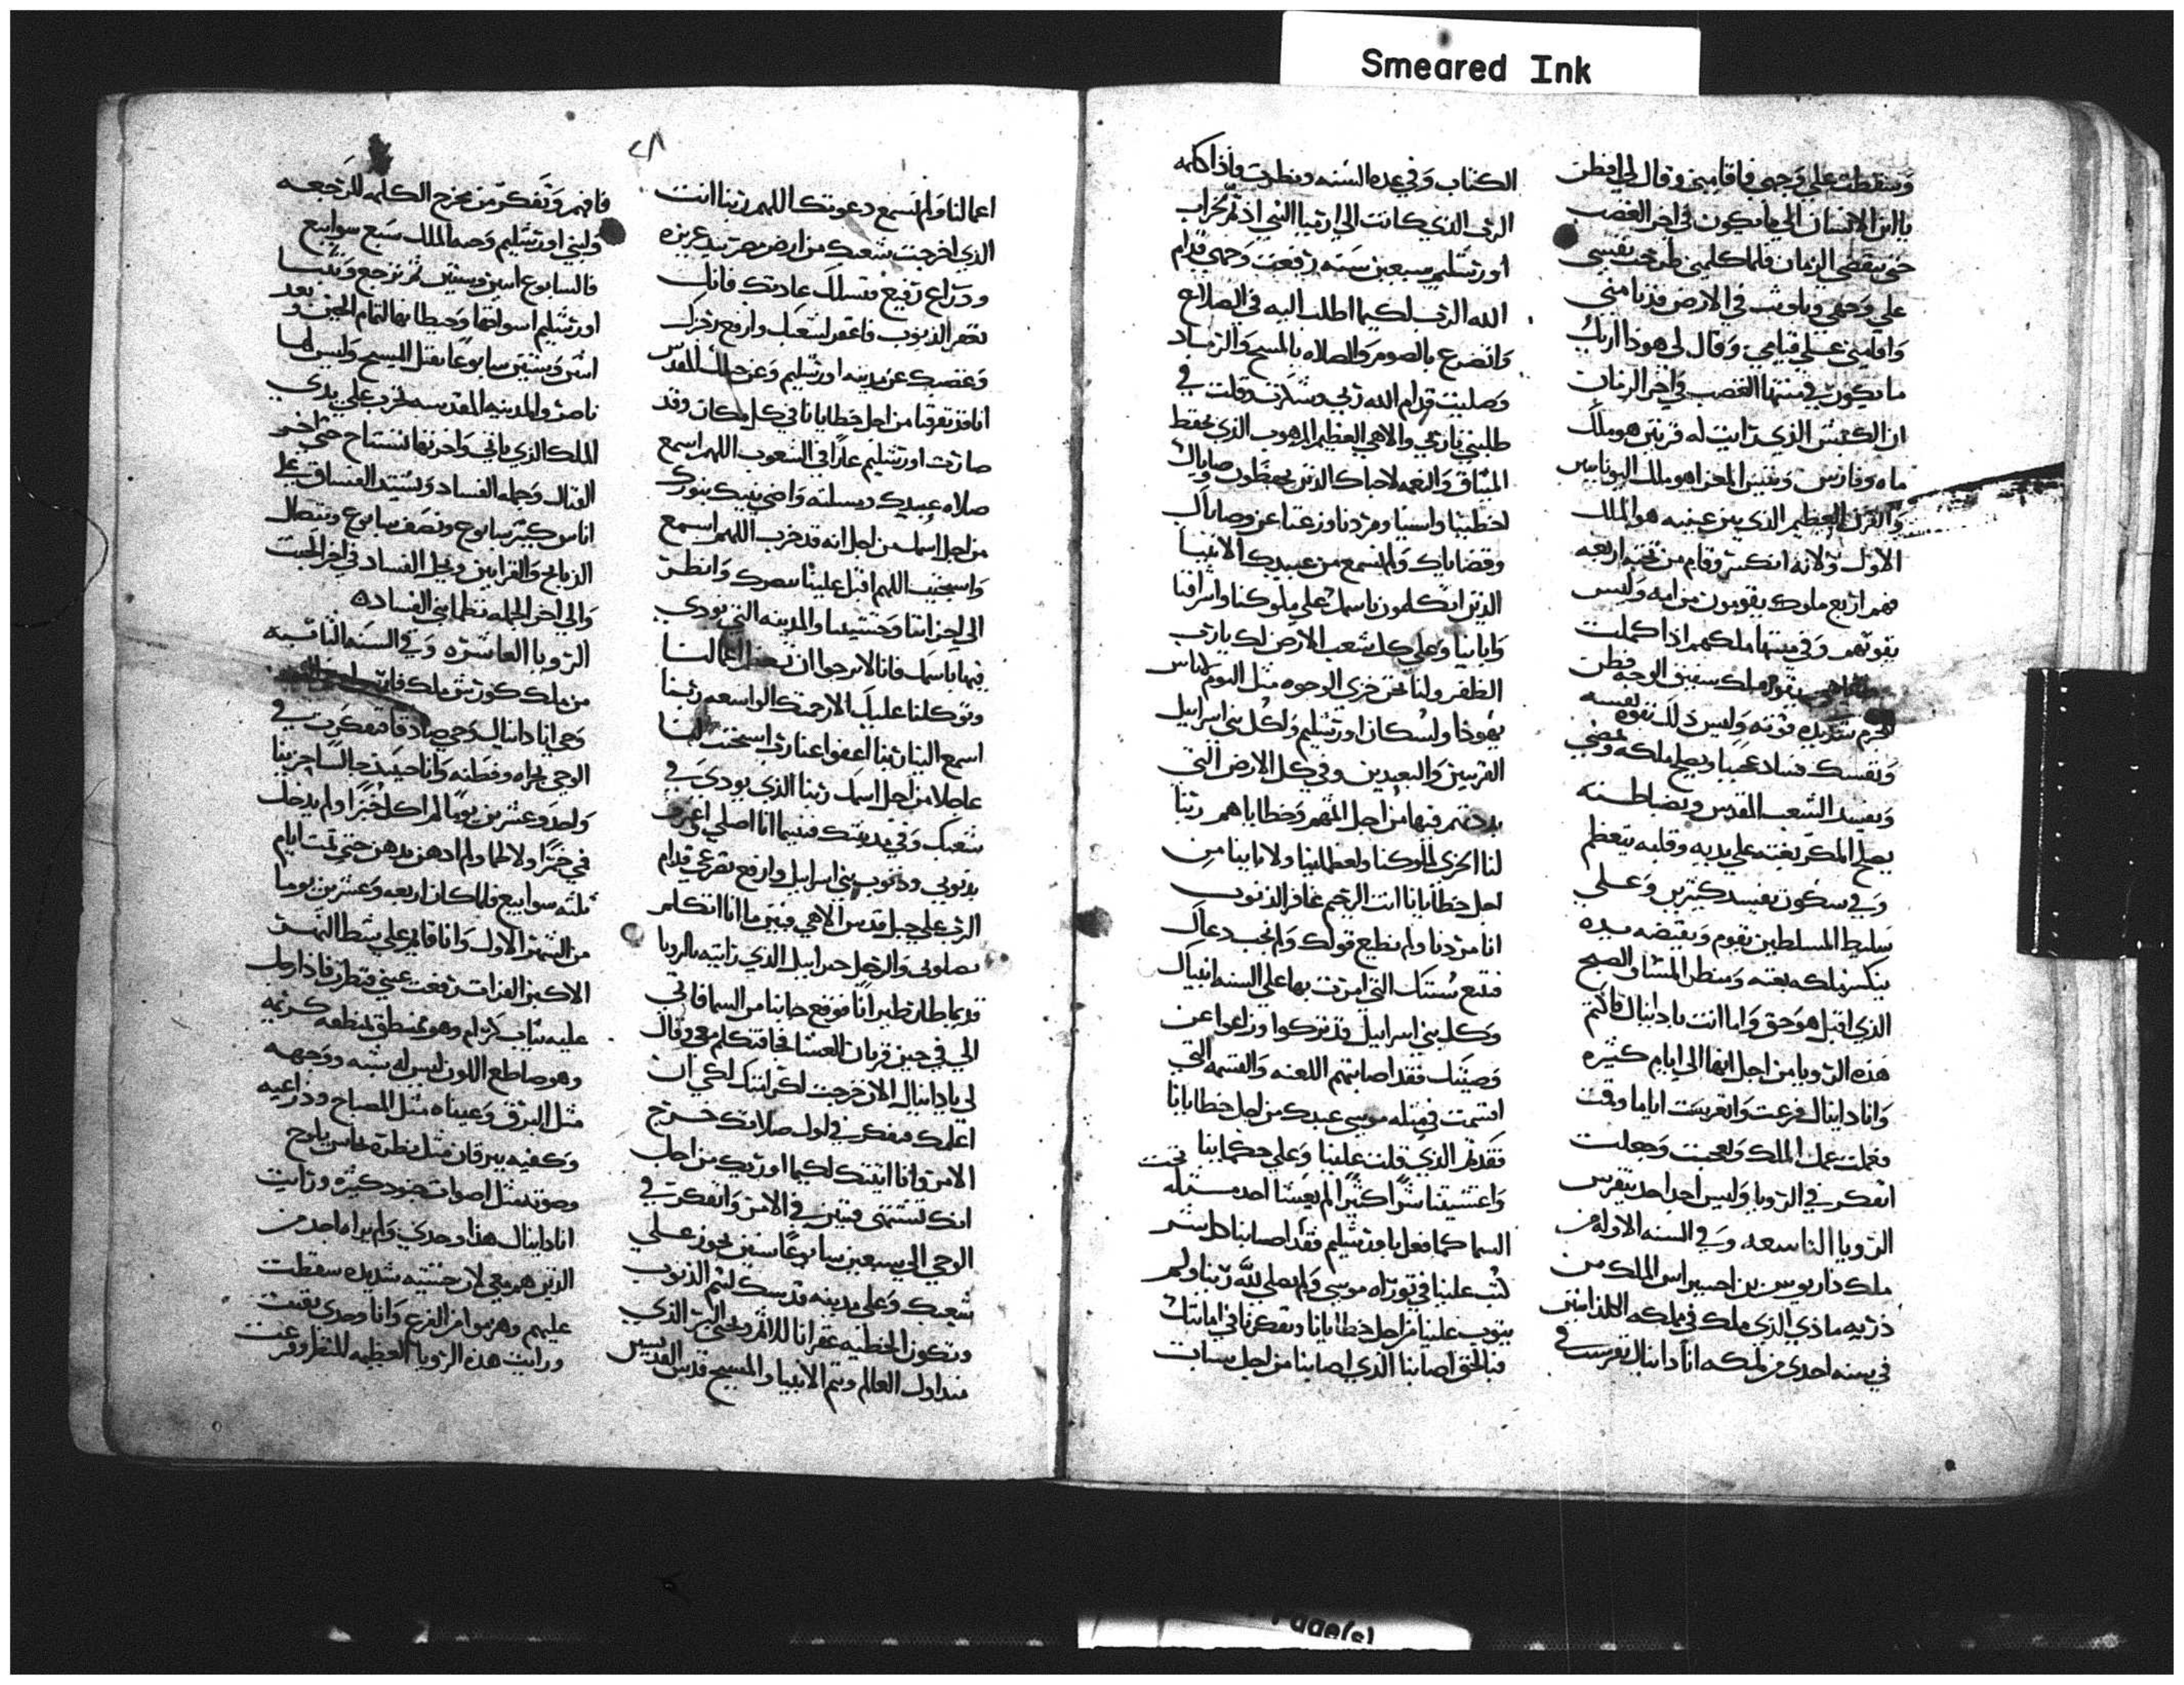 Smeared Ink
وسقطت علي وجهي فاقامني وقال لي افطن
يا ابن الانسان الي ما يكون في اخر الغضب
حتي ينقضي الزمان فلما كلمني طرحت نفسي
علي وجهي وباوت في الارض فدنا مني
واقامني علي قيامي وقال لي هوذا اريك
ما يكون في منتها الغضب واخر الزمان
ان الكبش الذي رايت له قرنين هو ملك
ماه وفارس وتيس المعزا هو ملك اليونانيين
والقرن العظيم الذي بين عينيه هو الملك
الاول ولانه انكسر وقام من تحته اربعه
فهم اربع ملوك يقومون من امه وليس
بقوتهم وفي منتها ملكهم اذا كملت
يقوم ملك سفيق الوجه فطن
تشديده قوته وليس ذلك بقوه نفسه
ويفسد فسادا عجيبا ويصلح ملكه ويمضي
ويفسد الشعب المقدس
يصلح المكر بغته علي يديه وقلبه يتعظم
وفي سكون يفسد كثيرين وعلي
سليط المسلطين يقوم وبقبضه يده
ينكسر ملكه بغته ومنظر المشا والصبح
الذي اقبل هو حق واما انت يا دانيال فاكتم
هذه الرويا من اجل انها الي ايام كثيره
وانا دانيال فزعت وانغريت اياما وقمت
فعملت عمل الملك وتعجبت وجعلت
اتفكر في الرويا وليس احد احد يتفرس
الرويا التاسعه وفي السنه الاوله من
ملك داريوس بن احسيراس الملك من
ذريه ماذي الذي ملك في مملكه الكلدانيين
في سنه احدي من ملكه انا دانيال تفرست في
الكتاب وفي عدد السنه ونظرت فاذا كلمه
الرب الذي كانت الي ارميا النبي اذ تم لخراب
اورشليم سبعين سنه رفعت وجهي قدام
الله الرب لكيما اطلب اليه في الصلاح
واتضرع بالصوم والصلاه بالمسح والرماد
وصليت قدام الله ربي وشكرت وقلت في
طلبتي يا ربي والاهي العظيم المرهوب الذي يحفظ
الميثاق والنعمه لاحباك الذين يحفظون وصاياك
اخطينا واسينا ومردنا وزغنا عن وصاياك
وقضاياك ولم نسمع من عبيدك الانبيا
الذين اتكلمون باسمك علي ملوكنا واشرافنا
وابائنا وعلي كل شعب الارض لك يا رب
الظفر ولنا نحن خزي الوجوه مثل اليوم لاناس
يهوذا ولسكان اورشليم ولكل بني اسراييل
القريبين والبعيدين وفي كل الارض التي
بددتهم فيها من اجل اثمهم وخطاياهم ربنا
لنا الخزي لملوكنا ولعظماينا ولاباينا من
اجل خطايانا انت الرحيم غافر الذنوب
انا مردنا ولم نطيع قولك ولم نجب دعاك
فنتبع سنتك التي امرت بها علي السنه انبياك
وكل بني اسراييل قد تركوا وزاغوا عن
وصيتك فقد اصابتهم اللعنه والقسمه التي
اقسمت في قبله موسي عبدك من اجل خطايانا
فقدمت الذي قلت علينا وعلي حكماينا
واغشيتنا شرا كثيرا لم يغشا احد مثله تحت
السما كما فعل باورشليم فقد اصابنا كل شر
كتب علينا في توراه موسي ولم نصلي لله ربنا ولم
يتوب علينا من اجل خطايانا وتفكرنا في امانتك
فبالحق اصابنا الذي اصابنا من اجل سيات
٢٨
اعمالنا ولم نسمع دعوتك اللهم ربنا انت
الذي اخرجت شعبك من ارض مصر بيد عزيزه
وذراع رفيع فنسلك عادتك فانك
تغفر الذنوب فاغفر لشعبك وارفع رجزك
وغضبك عن مدينه اورشليم وعن جبلك المقدس
انا قد تفرقنا من اجل خطايانا في كل مكان وقد
صارت اورشليم عارا في الشعوب اللهم اسمع
صلاه عبيدك ومسلته واضي بيتك بنورك
من اجل اسمك من اجل انه قد خرب اللهم اسمع
واستجيب اللهم اقبل علينا ببصرك وانظر
الي احزاننا وخشيتنا والمدينه التي نودي
فيها باسمك فانا لا نرجوا ان اعمالنا
وتوكلنا عليك الا رحمتك الواسعه ربنا
اسمع الينا ربنا اعفوا عنا رب استجب لنا
عاجلا من اجل اسمك ربنا الذي نودي في
شعبك وفي مدينتك فبينما انا اصلي واعترف
بذنوبي وذنوب بني اسراييل وارفع تضرعي قدام
الرب علي جبل قدس الاهي وبين ما انا اتكلم
بصلوتي والرجل جبراييل الذي رايته بالرويا
قديما طار طيرانا فوقع جانبا من السما فاتي
الي في حين قربان العشا فجا فتكلم معي وقال
لي يا دانيال الان خرجت لك لكي ان
اعلمك فتفكر في اول صلاتك خرج
الامر وانا اتيتك لكيما اوريك من اجل
انك تشتهي فتبين في الامر واتفكرت في
الوحي الي سبعين سابوعا سنين تجوز علي
شعبك وعلي مدينه قدسك لتتم الذنوب
وتكون الخطيه غفرانا للاثم ويحي البر الذي
منذ اول العالم وتتم الانبيا والمسيح قدس القديسين
فافهم وتفكر من مخرج الكلمه للرجعه
ولبني اورشليم وحيه الملك سبع سوابيع
فالسابوع اثنين وستين ثم ترجع وتبنا
اورشليم اسواقها وحيطانها لتمام الحين وبعد
اثنين وستين سابوعا يقتل المسيح وليس لها
ناصر والمدينه المقدسه تخرب علي يدي
الملك الذي ياتي واخرتها تستتاح حتي اخر
القتال وجمله الفساد ويشتد الفساق علي
اناس كثير سابوع ونصف سابوع وتبطال
الذبايح والقرابين ويحل الفساد في اخر الخبث
والي اخر الجمله تنظما بني الفساده
الرويا العاشره وفي السنه الثانيه
من ملك كورش ملك فارس
وحي انا دانيال وحي صادقا فتفكرت في
الوحي بجراه وفطنه وانا حينيذ جالسا حزينا
واحد وعشرين يوما لم اكل خبزا ولم يدخل
في خمرا ولا لحما ولم ادهن بدهن حتي تمت ايام
ثلثه سوابيع فلما كان اربعه وعشرين يوما
من الشهر الاول وانا قايم علي شط النهر
الاكبر الفرات رفعت عيني فنظرت فاذا رجل
عليه ثياب كرام وهو ممنطق بمنطقه كريمه
وهو صاطع اللون ليس له شبه ووجهه
مثل البرق وعيناه مثل المصباح وذراعيه
وكفيه يبرقان مثل نظره نحاس يلوح
وصوته مثل اصوات جنود كثيره ورايت
انا دانيال هذا وحدي ولم يراه احد من
الذين هم معي لان خشيه شديده سقطت
عليهم وهربوا من الفزع وانا وحدي بقيت
ورايت هذه الرويا العظيمه المنظر وفزعت